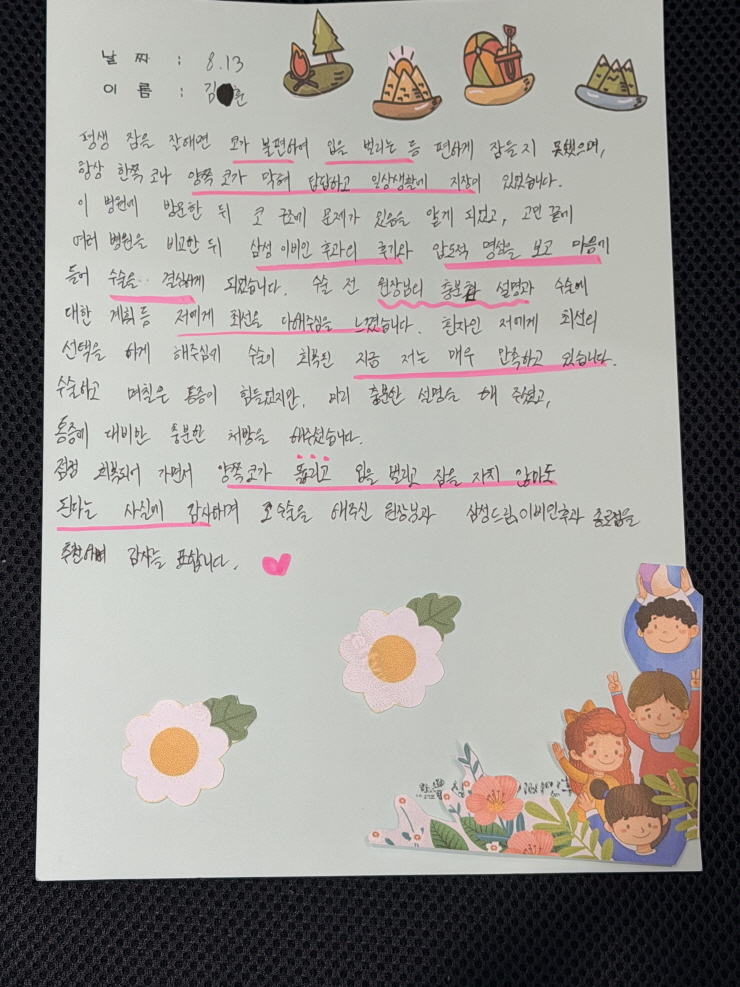 날 짜 : 8.13
이 름 : 김 훈
평생 잠을 잘때면 코가 불편하여 입을 벌리는 등 편하게 잠을 자지 못했으며,
항상 한쪽 코나 양쪽 코가 막혀 답답하고 일상생활에 지장이 있었습니다.
이 병원에 방문한 뒤 코 구조에 문제가 있음을 알게 되었고, 고민 끝에
여러 병원을 비교한 뒤 삼성 이비인 후과의 후기와 압도적 명성을 보고 마음에
들어 수술을.. 결심하게 되었습니다. 수술 전 원장님의 충분한 설명과 수술에
대한 계획 등 저에게 최선을 다해주심을 느꼈습니다. 환자인 저에게 최선의
선택을 하게 해주심에 수술이 회복된 지금 저는 매우 만족하고 있습니다.
수술하고 며칠은 통증이 힘들었지만, 미리 충분한 설명을 해 주셨고,
통증에 대비한 충분한 처방을 해주셨습니다.
점점 회복되어 가면서 양쪽 코가 뚫리고 입을 벌리고 잠을 자지 않아도
된다는 사실에 감사하며 코 수술을 해주신 원장님과 삼성드림이비인후과 종로점을
추천하며 감사를 표합니다.